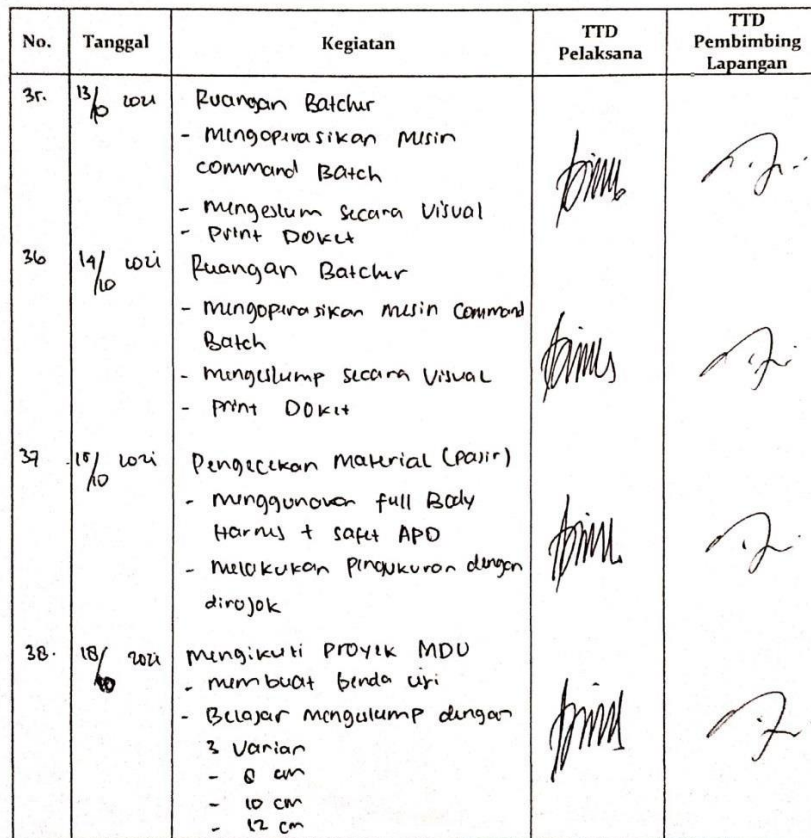 No. Tanggal Kegiatan TTD Pelaksana TTD Pembimbing Lapangan
35. 13/10 2021 Ruangan Batcher
- Mengoperasikan Mesin
command Batch
- Mengeslum secara Visual
- Print Doket
36 14/10 2021 Ruangan Batcher
- Mengoperasikan Mesin Command
Batch
- Mengeslump secara Visual
- Print Doket
37 15/10 2021 Pengecekan Material (Pasir)
- Menggunakan full Body
Harnes + safet APD
- Melakukan Pengukuran dengan
dirojok
38. 18/10 2021 Mengikuti Proyek MDU
- Membuat benda uji
- Belajar Mengslump dengan
3 Varian
- 8 cm
- 10 cm
- 12 cm